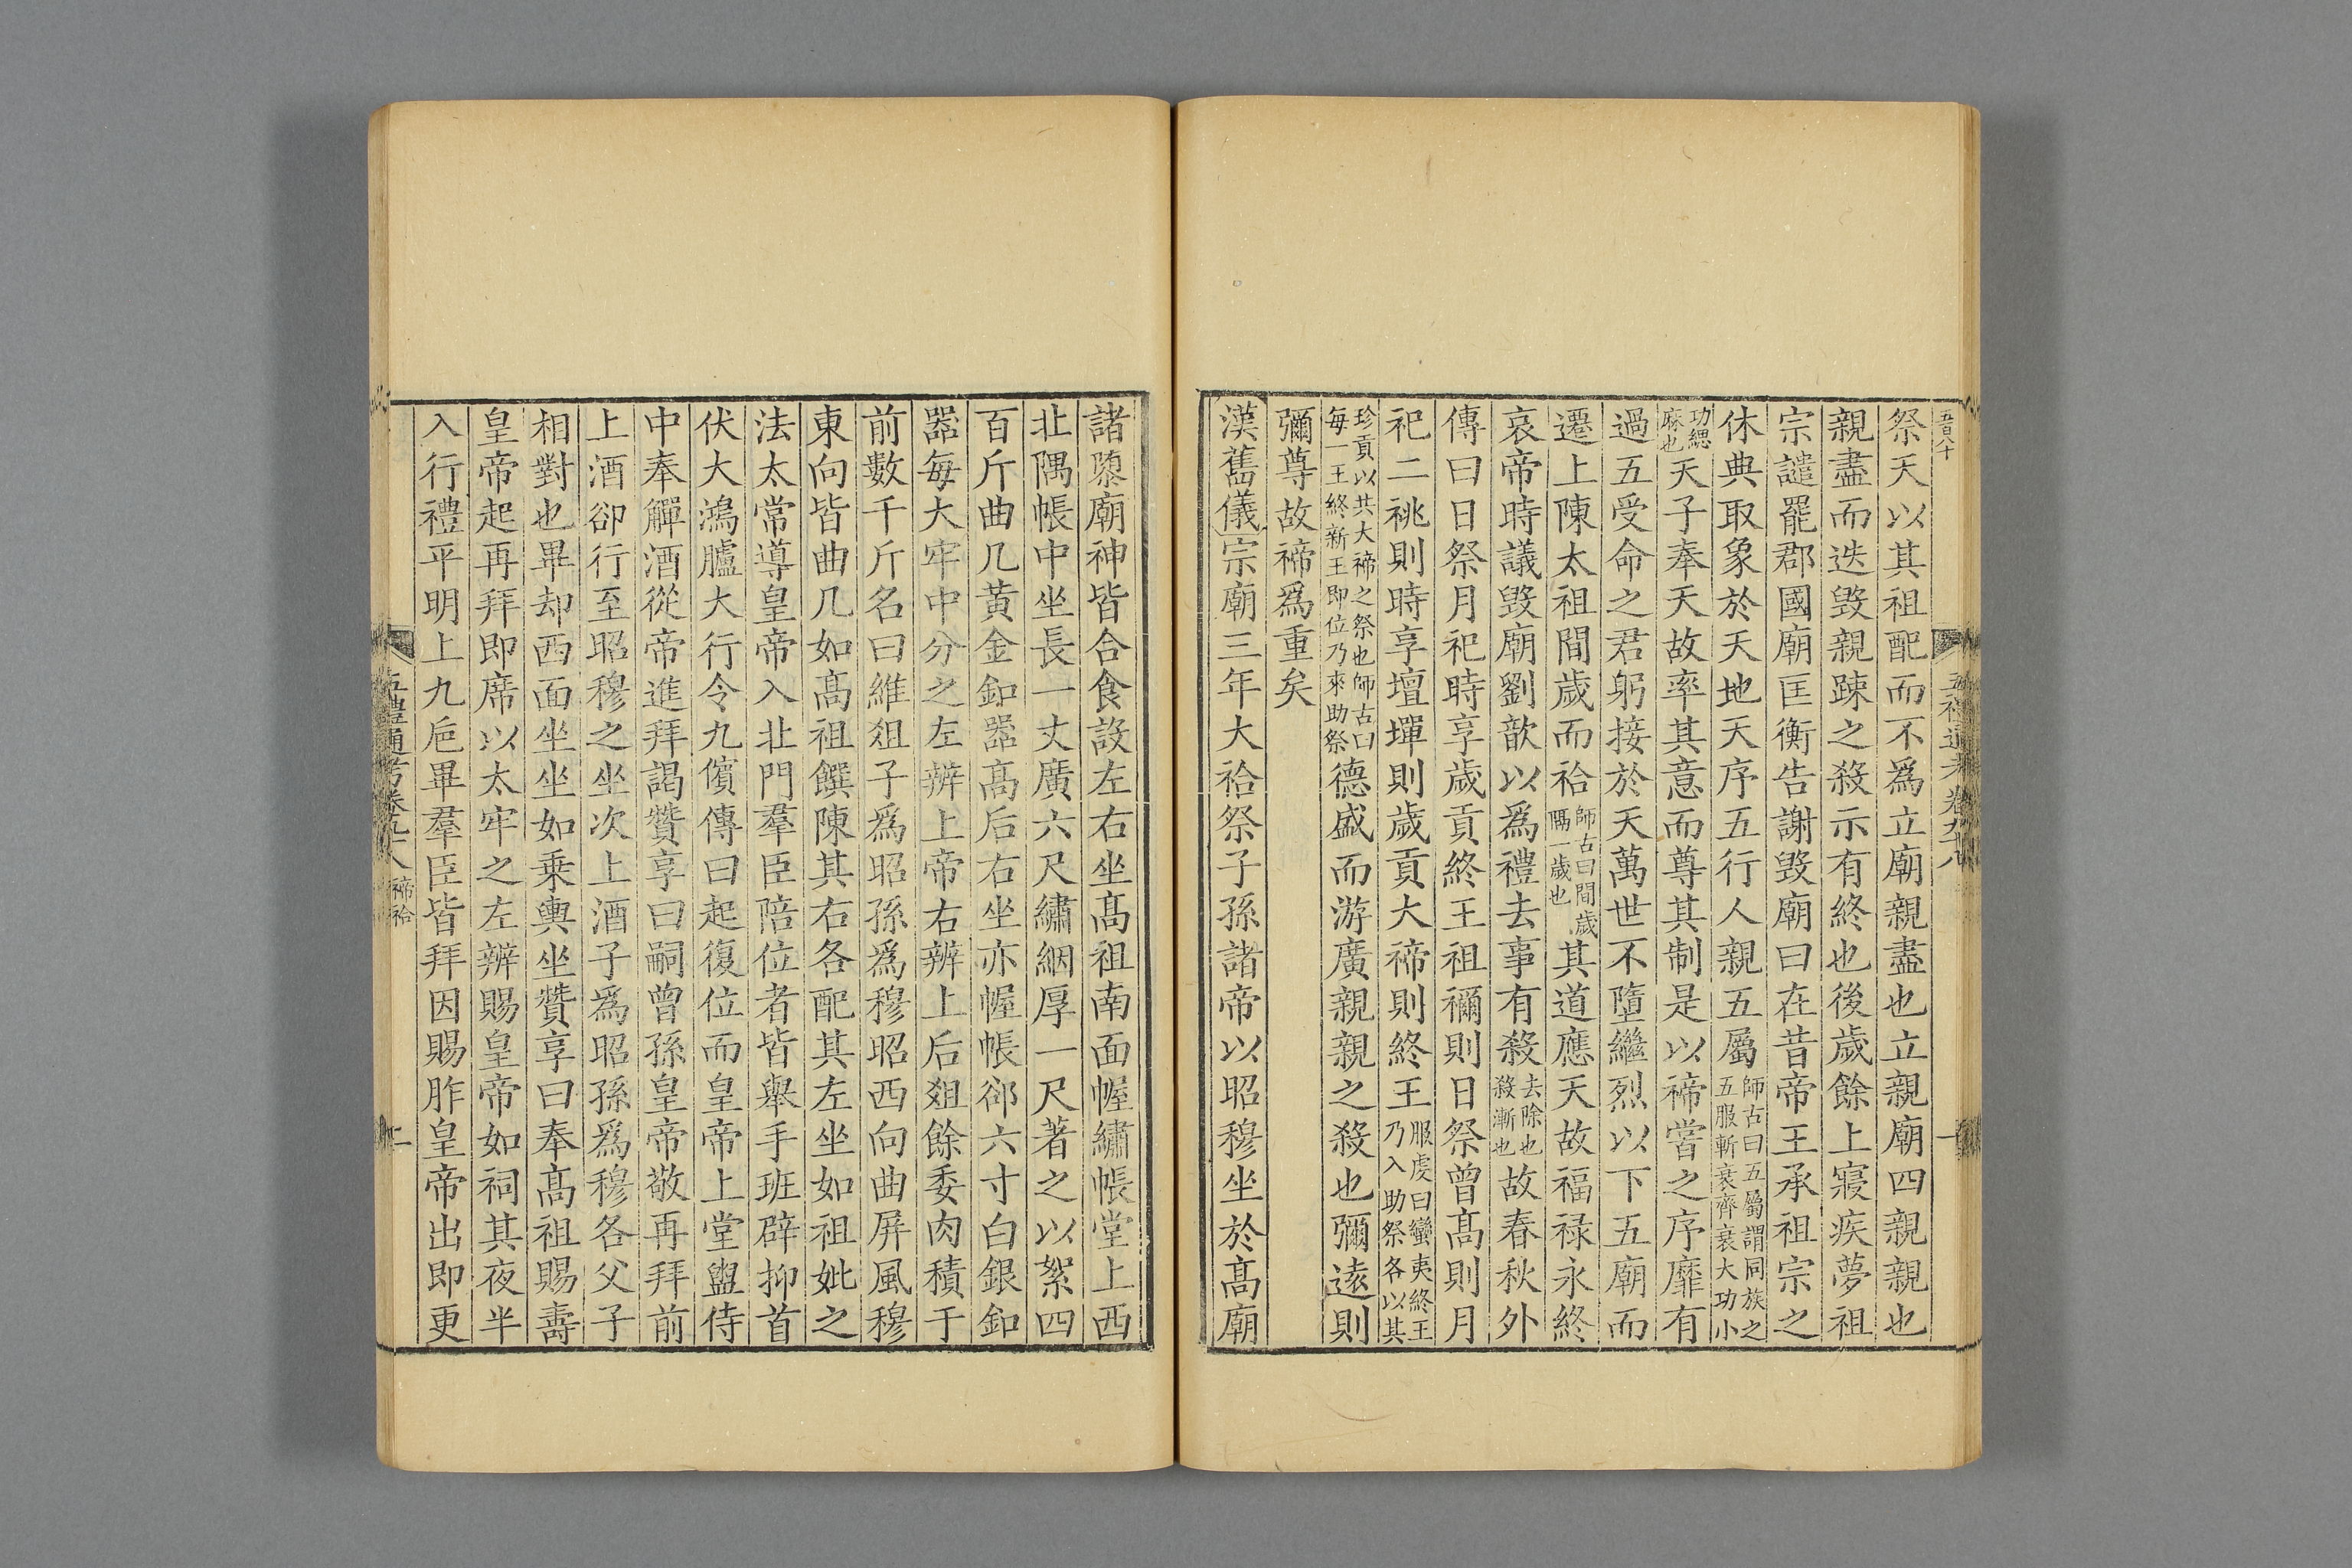 五百八十
祭天以其祖配而不爲立廟親盡也立親廟四親親也
親盡而迭毀親踈之殺示有終也後歲餘上寢疾夢祖
宗譴罷郡國廟匡衡告謝毀廟曰在昔帝王承祖宗之
休典取象於天地天序五行人親五屬師古曰五屬謂同族之五服斬衰齊衰大功小
功緦麻也天子奉天故率其意而尊其制是以禘嘗之序靡有
過五受命之君躬接於天萬世不墮繼烈以下五廟而
遷上陳太祖間歲而祫師古曰間歲隔一歲也其道應天故福祿永終
哀帝時議毀廟劉歆以爲禮去事有殺去除也殺漸也故春秋外
傳曰日祭月祀時享歲貢終王祖禰則日祭曾髙則月
祀二祧則時享壇墠則歲貢大禘則終王服虔曰蠻夷終王乃入助祭各以其
珍貢以共大禘之祭也師古曰每一王終新王即位乃來助祭德盛而游廣親親之殺也彌逺則
彌尊故禘爲重矣
漢舊儀宗廟三年大祫祭子孫諸帝以昭穆坐於髙廟
諸隳廟神皆合食設左右坐髙祖南面幄繡帳堂上西
北隅帳中坐長一丈廣六尺繡絪厚一尺著之以絮四
百斤曲几黃金釦器髙后右坐亦幄帳郤六寸白銀釦
器每大牢中分之左辨上帝右辨上后俎餘委肉積于
前數千斤名曰維俎子爲昭孫爲穆昭西向曲屏風穆
東向皆曲几如髙祖饌陳其右各配其左坐如祖妣之
法太常導皇帝入北門羣臣陪位者皆舉手班辟抑首
伏大鴻臚大行令九儐傳曰起復位而皇帝上堂盥侍
中奉觶酒從帝進拜謁贊享曰嗣曾孫皇帝敬再拜前
上酒卻行至昭穆之坐次上酒子爲昭孫爲穆各父子
相對也畢却西面坐坐如乗輿坐贊享曰奉髙祖賜壽
皇帝起再拜即席以太牢之左辨賜皇帝如祠其夜半
入行禮平明上九巵畢羣臣皆拜因賜胙皇帝出即更
五禮通考卷九十八 禘祫 二